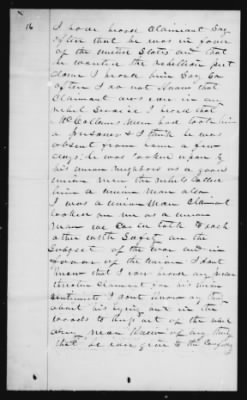 16
I have heard Claimant say
often that he was in favor
of the United States and that
he wanted the rebellion put
down I heard him say so
often I do not know that
Claimant was ever in any
rebel service I heard that
McCollums men had took him
a prisoner & I think he was
absent from home a few
days. he was looked upon by
his union neighbors as a good
union man the rebels called
him a union man also
I was a union man Claimant
looked on me as a union
man we could talk to each
other with safety on the
subject of the war and in
favor of the union I dont
know that I ever heard any person
threaten Claimant for his union
sentiments I dont know any thing
about his lying out in the
woods to keep out of the rebel
army never knew of any thing
that he ever give to the Confedy